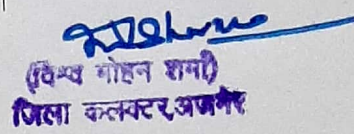 (विश्व मोहन शर्मा)
जिला कलक्टर,अजमेर